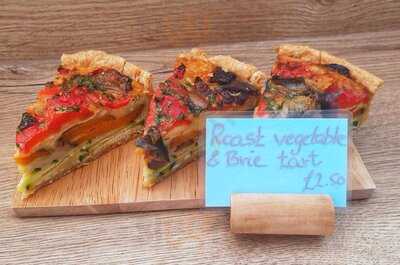 Roast vegetable
& Brie tart
£2.50